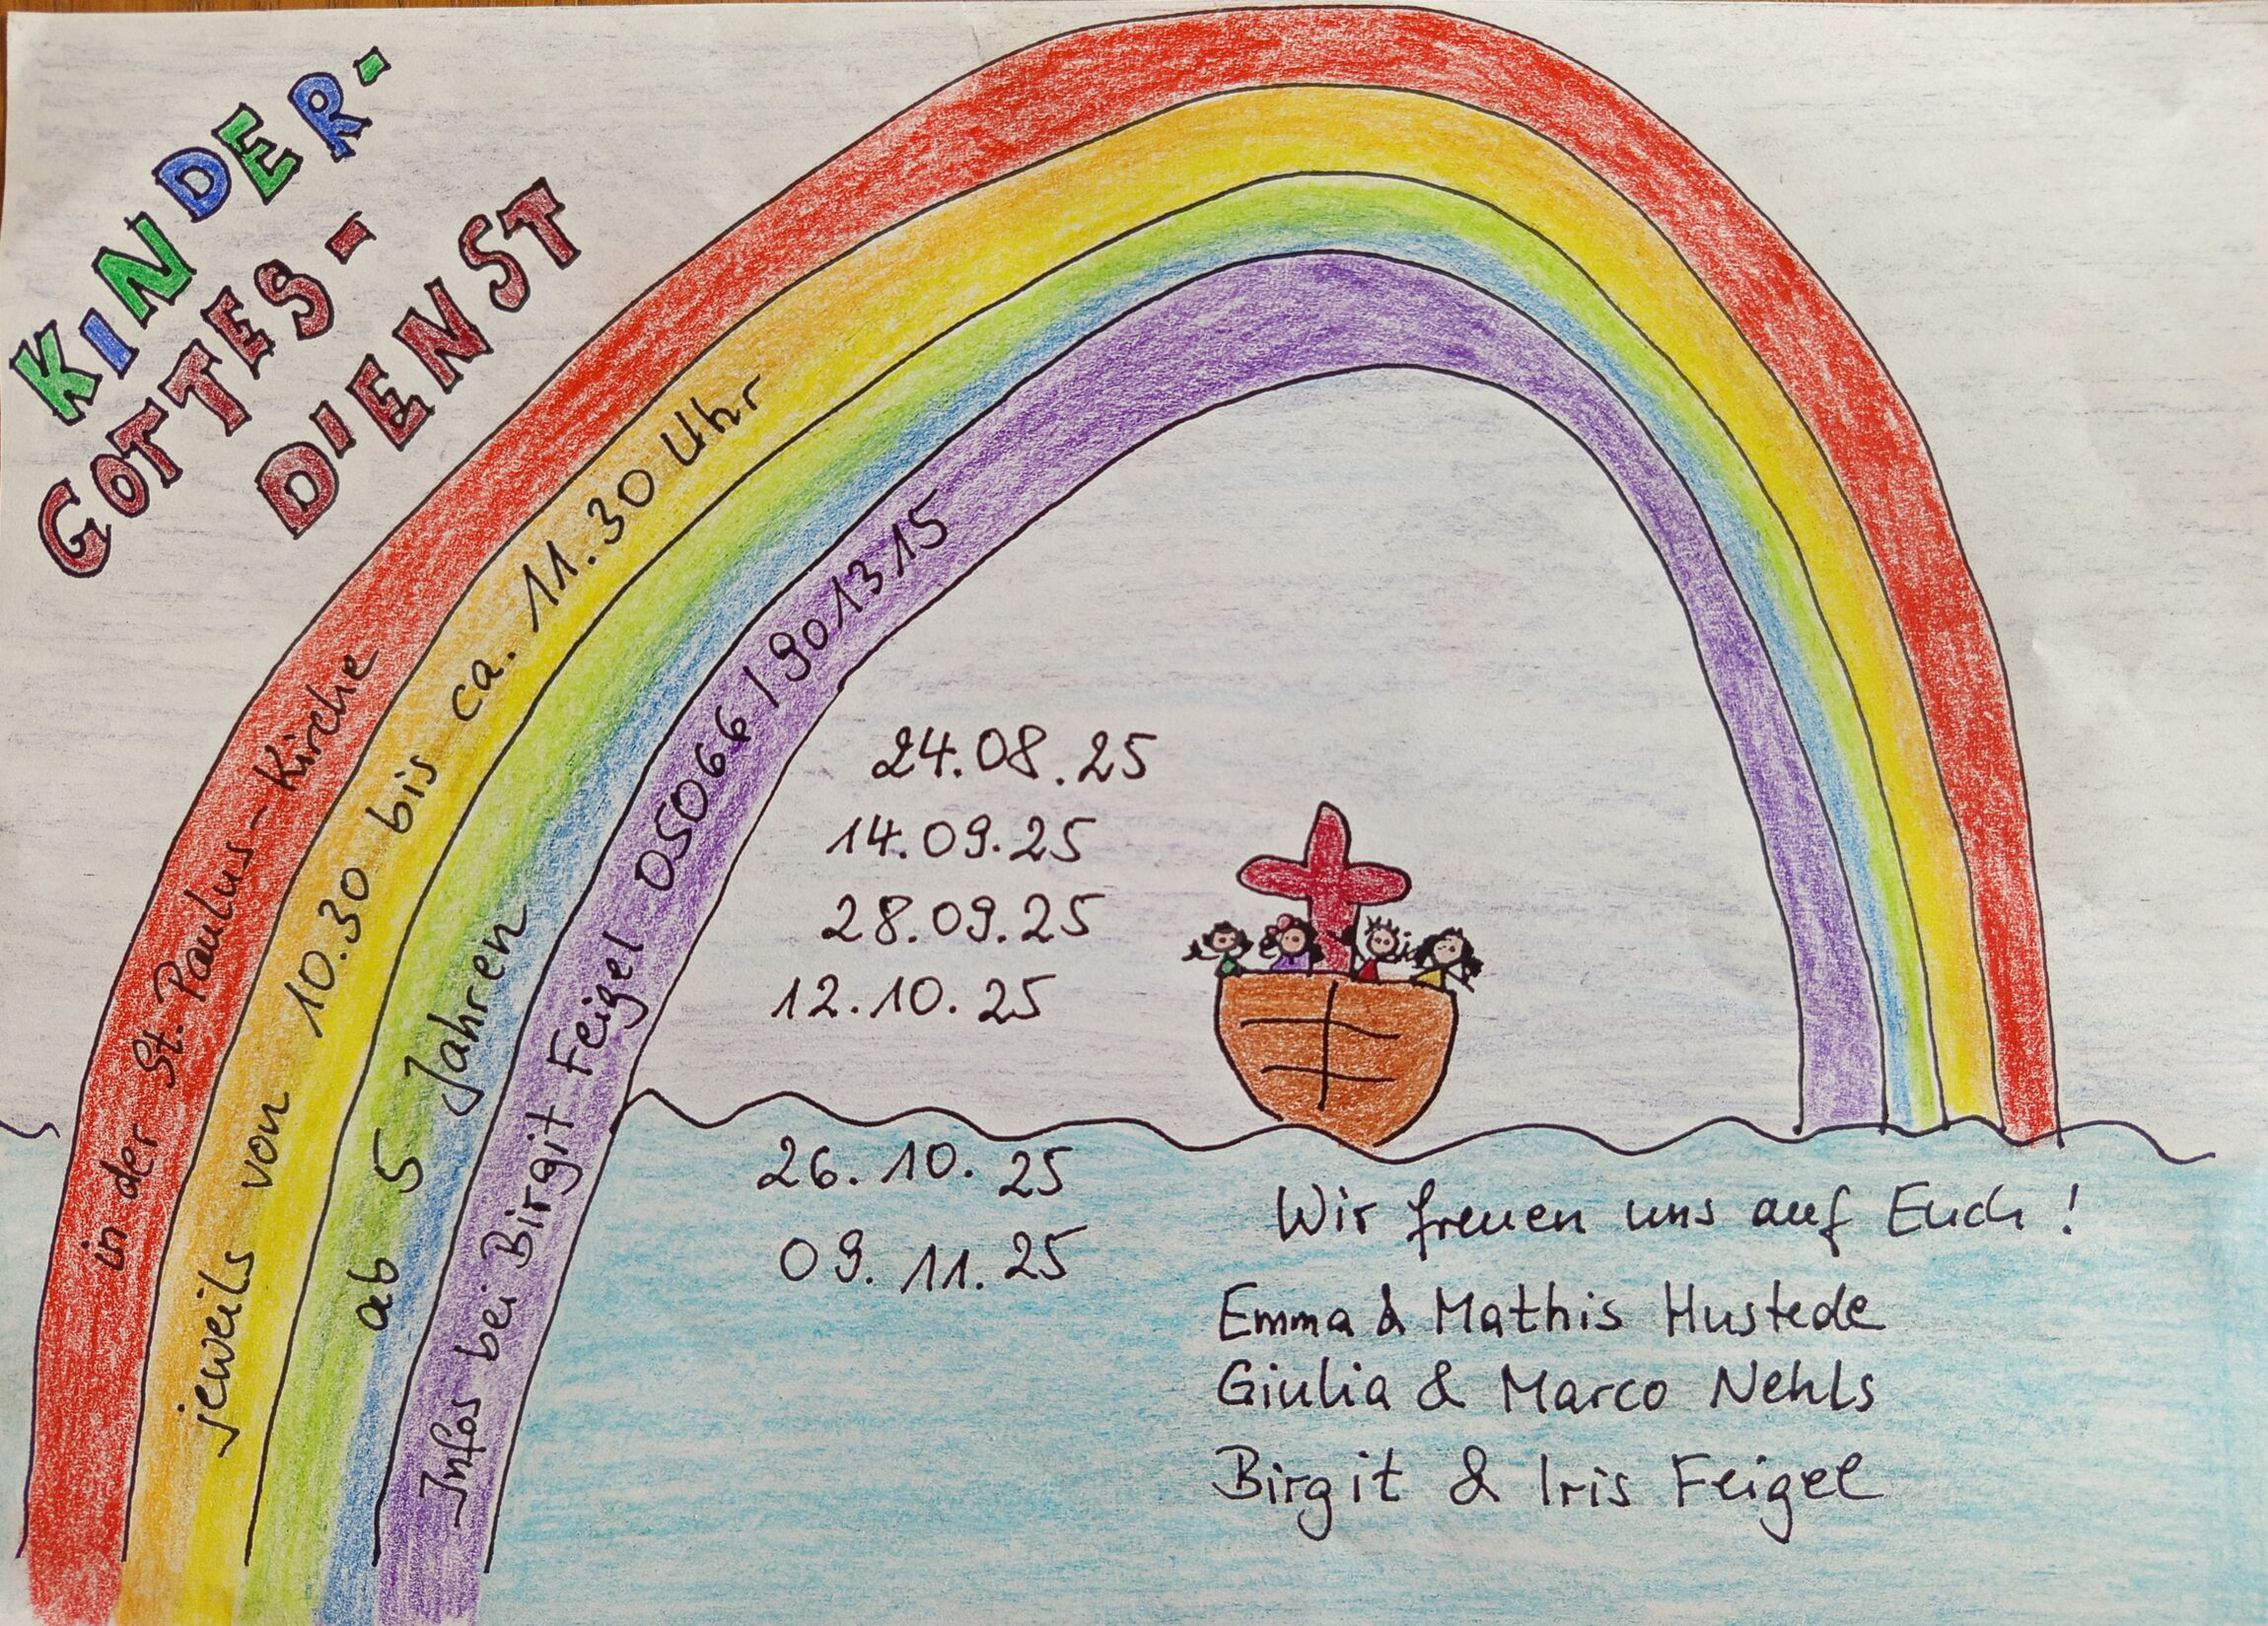 KINDER-
GOTTES-
DIENST
in der St. Paulus-Kirche
jeweils von 10.30 bis ca. 11.30 Uhr
ab 5 Jahren
Infos bei Birgit Feigel 05066/9013315
24.08.25
14.09.25
28.09.25
12.10.25
26.10.25
09.11.25
Wir freuen uns auf Euch!
Emma & Mathis Hustede
Giulia & Marco Nehls
Birgit & Iris Feigel